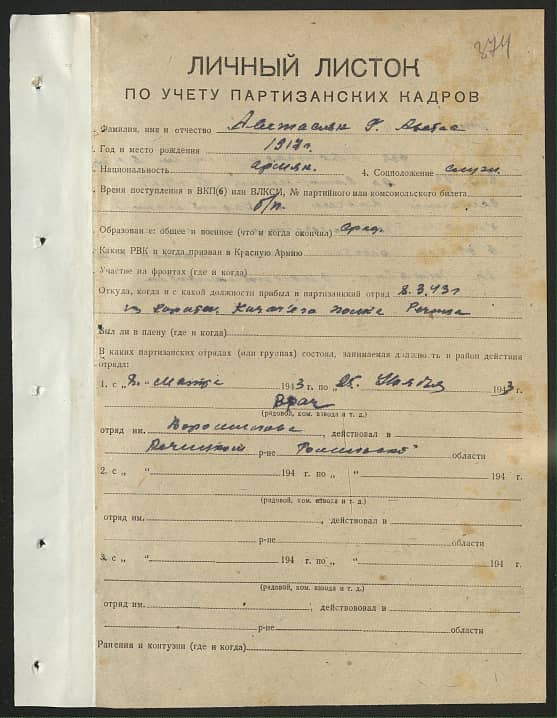 374
ЛИЧНЫЙ ЛИСТОК
ПО УЧЕТУ ПАРТИЗАНСКИХ КАДРОВ
Фамилия, имя и отчество
Год и место рождения 1917 г.
Национальность армян. 4. Соцположение служ.
Время поступления в ВКП(б) или ВЛКСМ, № партийного или комсомольского билета
б/п.
Образование: общее и военное (что и когда окончил) сред.
Каким РВК и когда призван в Красную Армию
Участие на фронтах (где и когда)
Откуда, когда и с какой должности прибыл в партизанский отряд 8.3.43г
из полка Речица
Был ли в плену (где и когда)
В каких партизанских отрядах (или группах) состоял, занимаемая должность и район действия
отряда:
1. с „8.“ Марта 1943 г. по „25. Ноября 1943 г.
Врач
(рядовой, ком. взвода и т. д.)
отряд им. Ворошилова, действовал в
Речицком р-не Гомельской области
2. с „ “ 194 г. по „ “ 194 г.
(рядовой, ком. взвода и т. д.)
отряд им. , действовал в
р-не области
3. с „ “ 194 г. по „ “ 194 г.
(рядовой, ком. взвода и т. д.)
отряд им. , действововал в
р-не области
Ранения и контузии (где и когда)